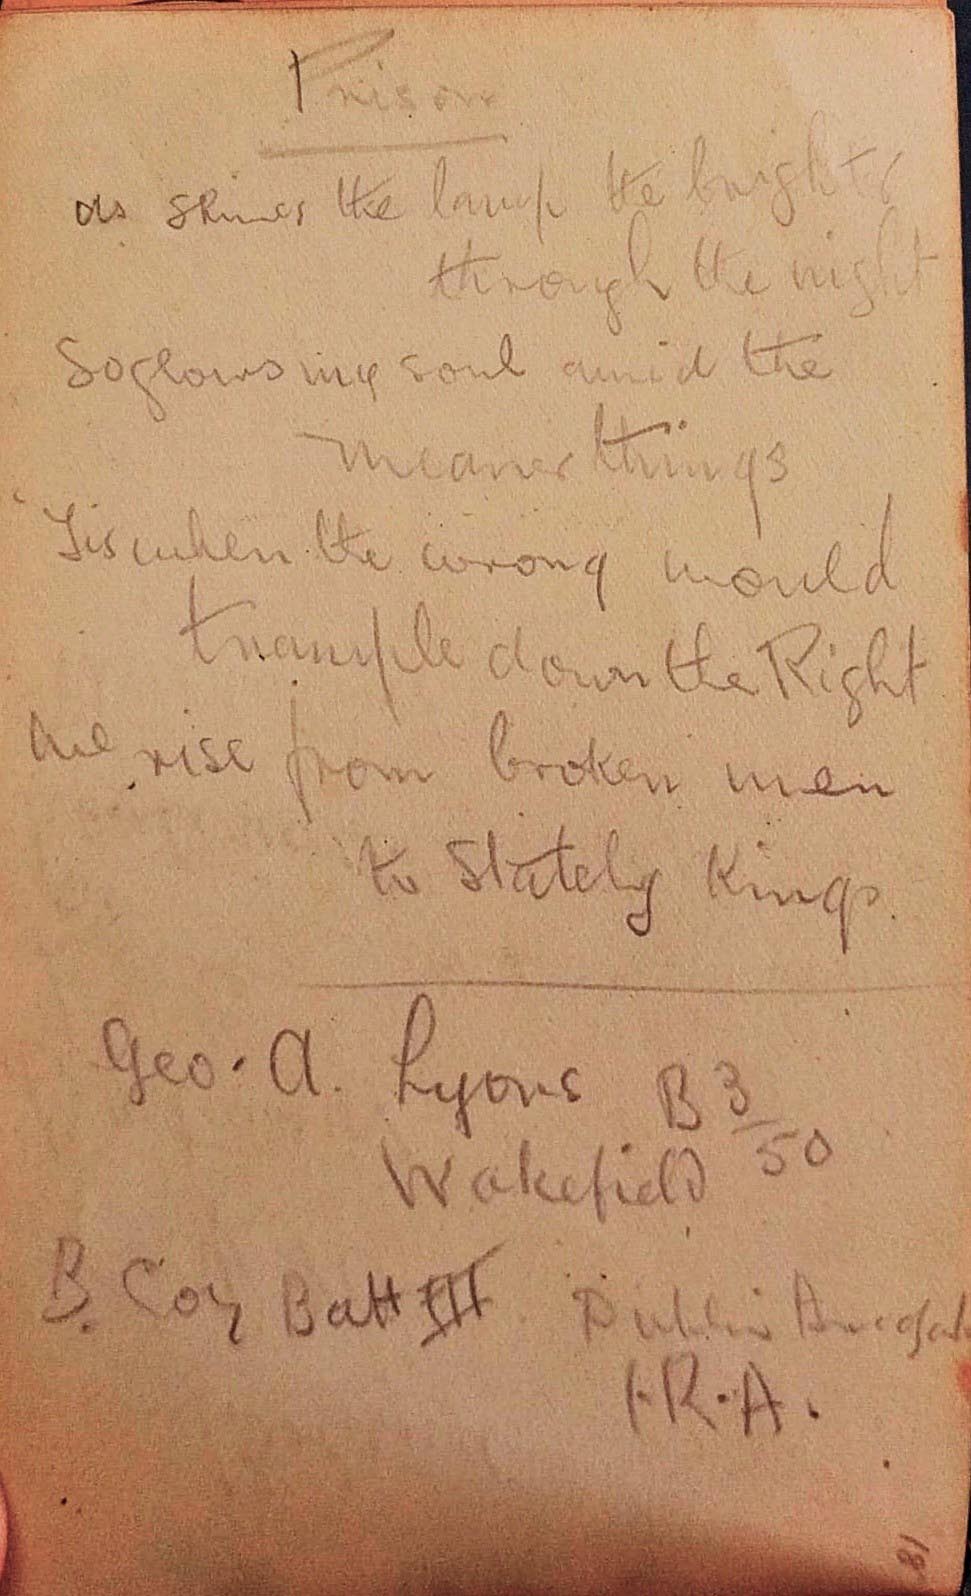 Prison
As shines the lamp the brighter
through the night
So glows my soul amid the
meaner things
'Tis when the wrong would
trample down the Right
We rise from broken men
to Stately Kings.
Geo. A. Lyons B 3/50
Wakefield
B. Coy Batt III Dublin Brigade
I.R.A.
81